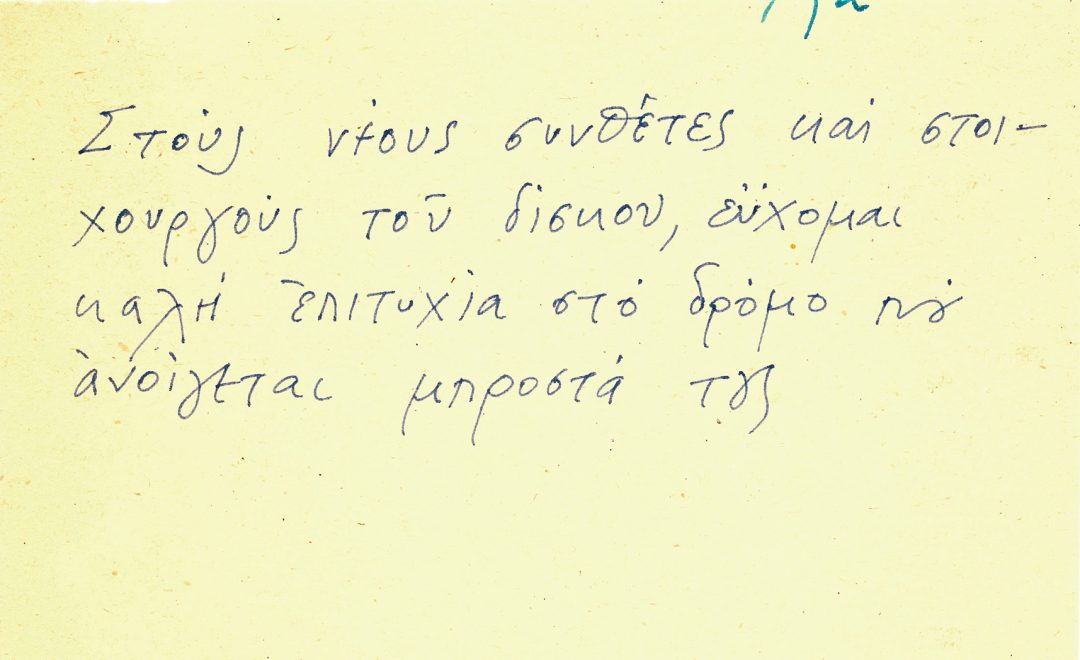 Στούς νέους συνθέτες καί στοι-
χουργούς τοῦ δίσκου, εὔχομαι
καλή ἐπιτυχία στό δρόμο πού
ἀνοίγεται μπροστά τους